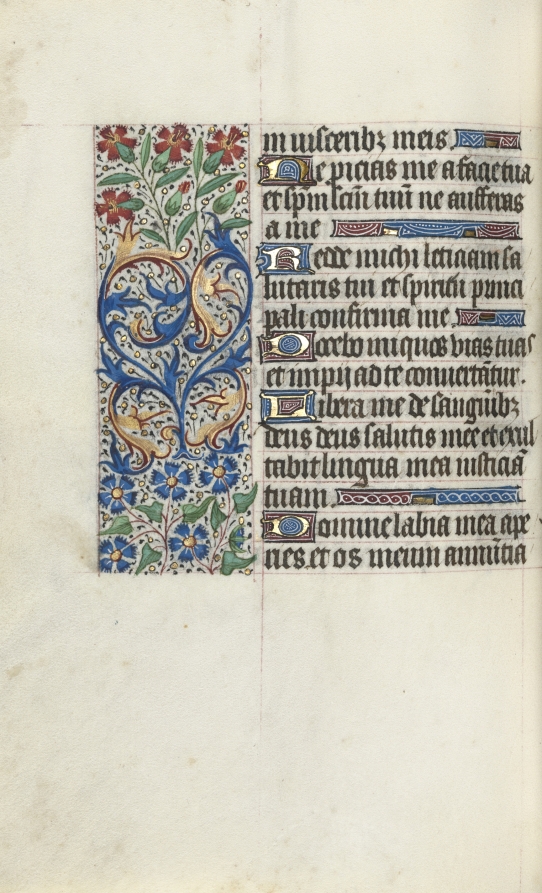 in uisceribꝫ meis
Ne picias me a facie tua
et spm̄ scm̄ tuū ne auferas
a me
Redde michi leticiam sa
lutaris tui et spiritū princi
pali confirma me
Docebo iniquos vias tuas
et impij ad te conuertātur.
Libera me de sanguībꝫ
deus deus salutis mee et exul
tabit lingua mea iusticiā
tuam
Domine labia mea ape
ries. et os meum annūtia